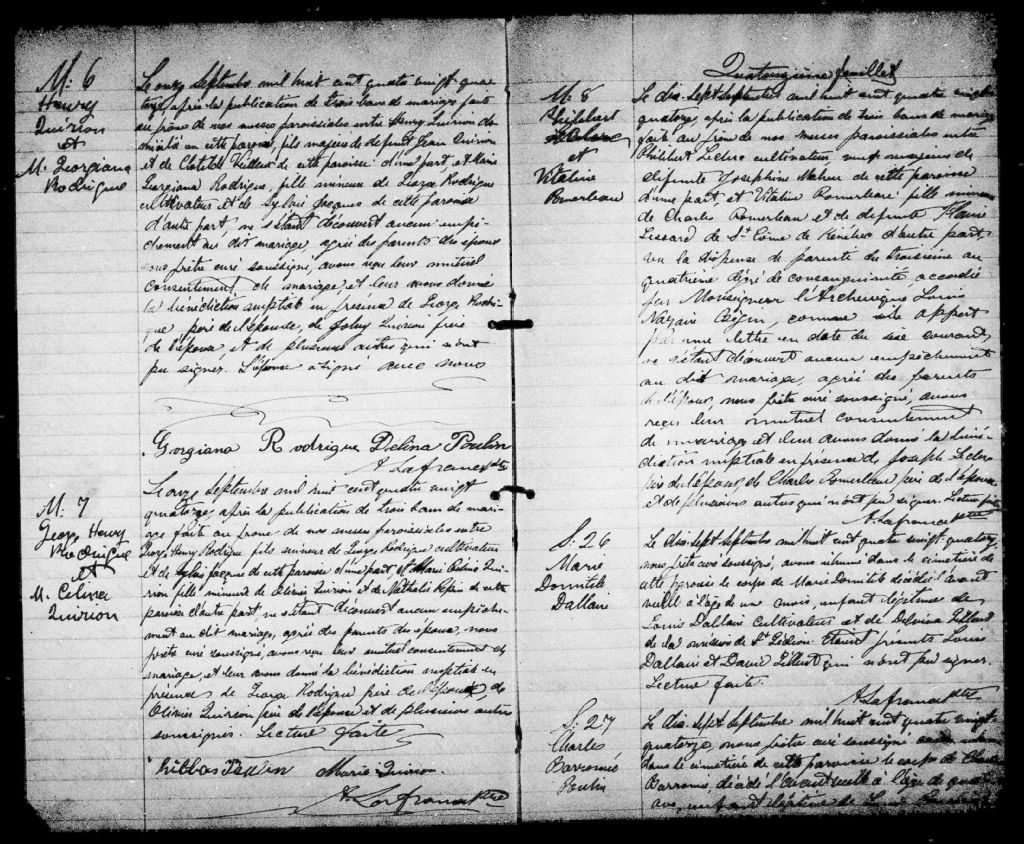 M: 6
Henry
Quirion
et
M. Georgiana
Rodrigue
Le onze Septembre mil huit cent quatre vingt qua
torze, après la publication de trois bans de mariage faite
au prône de nos messes paroissiales entre Henry Quirion do
micilié en cette paroisse, fils majeur de defunt Jean Quirion
et de Clotilde de cette paroisse d'une part, et Marie
Georgiana Rodrigue, fille mineure de George Rodrigue
cultivateur et de Sylvie Jacques de cette paroisse
d'autre part, ne s'étant découvert aucun empê-
chement au dit mariage, agrée des parents des époux
nous prêtre curé soussigné, avons reçu leur mutuel
consentement de mariage, et leur avons donné
la bénédiction nuptiale en présence de George Rodri-
gue, père de l'épouse, de Johny Quirion frère
de l'époux, et de plusieurs autres qui n'ont
pu signer. L'épouse a signé avec nous
Gorgiana Rodrigue Delina Poulin
A. Lafrance ptre
M: 7
George Henry
Rodrigue
et
M. Celina
Quirion
Le onze Septembre mil huit cent quatre vingt
quatorze, après la publication de trois bans de maria-
ge faite au prone de nos messes paroissiales entre
George Henry Rodrigue fils mineur de George Rodrigue cultivateur
et de Sylvie Jacques de cette paroisse d'une part, et Marie Celina Qui
rion fille mineure de Olivier Quirion et de Nathalie Pépin de cette
paroisse d'autre part, ne s'étant découvert aucun empêche-
ment au dit mariage, agrée des parents des époux, nous
prêtre curé soussigné, avons reçu leur mutuel consentement de
mariage, et leur avons donné la bénédiction nuptiale en
présence de George Rodrigue père de l'époux, de
Olivier Quirion père de l'épouse et de plusieurs autres
soussignés. Lecture faite
Marie Quirion
A. Lafrance ptre
Quatorzième feuillet
M: 8
Philibert
Leclerc
et
Vitaline
Pomerleau
Le dix-sept Septembre mil huit cent quatre vingt
quatorze, après la publication de trois bans de mariage
faite au prône de nos messes paroissiales entre
Philibert Leclerc cultivateur, majeur de
défunte Josephine Maheux de cette paroisse
d'une part, et Vitaline Pomerleau fille mineure
de Charles Pomerleau et de defunte Marie
Lessard de St Côme de Kénébec d'autre part
vu la dispense de parenté du troisième au
quatrième dégré de consanguinité accordée
par Monseigneur l'Archevêque Louis
Nazaire Bégin, comme il appert
par une lettre en date du six courant,
ne s'étant découvert aucun empêchement
au dit mariage, agrée des parents
de l'époux, nous prêtre curé soussigné, avons
reçu leur mutuel consentement
de mariage et leur avons donné la béné-
diction nuptiale en présence de Joseph Leclerc
père de l'époux, de Charles Pomerleau père de l'épouse
et de plusieurs autres qui n'ont pu signer. Lecture faite
A. Lafrance ptre
S. 26
Marie
Domitile
Dallaire
Le dix-sept Septembre mil huit cent quatre vingt-quatorze,
nous prêtre curé soussigné, avons inhumé dans le cimetière de
cette paroisse le corps de Marie Domitile décédée avant
veille à l'âge de un mois, enfant légitime de
Louis Dallaire Cultivateur et de Delvina Gilbert
de la mission de St Gédéon. Etaient présents Louis
Dallaire et David Gilbert qui n'ont pu signer.
Lecture faite.
A. Lafrance ptre
S. 27
Charles
Barromée
Poulin
Le dix-sept Septembre mil huit cent quatre vingt-
quatorze, nous prêtre curé soussigné avons inhumé
dans le cimetière de cette paroisse le corps de Charles
Barromé, décédé l'avant veille à l'âge de quatre
ans, enfant légitime de